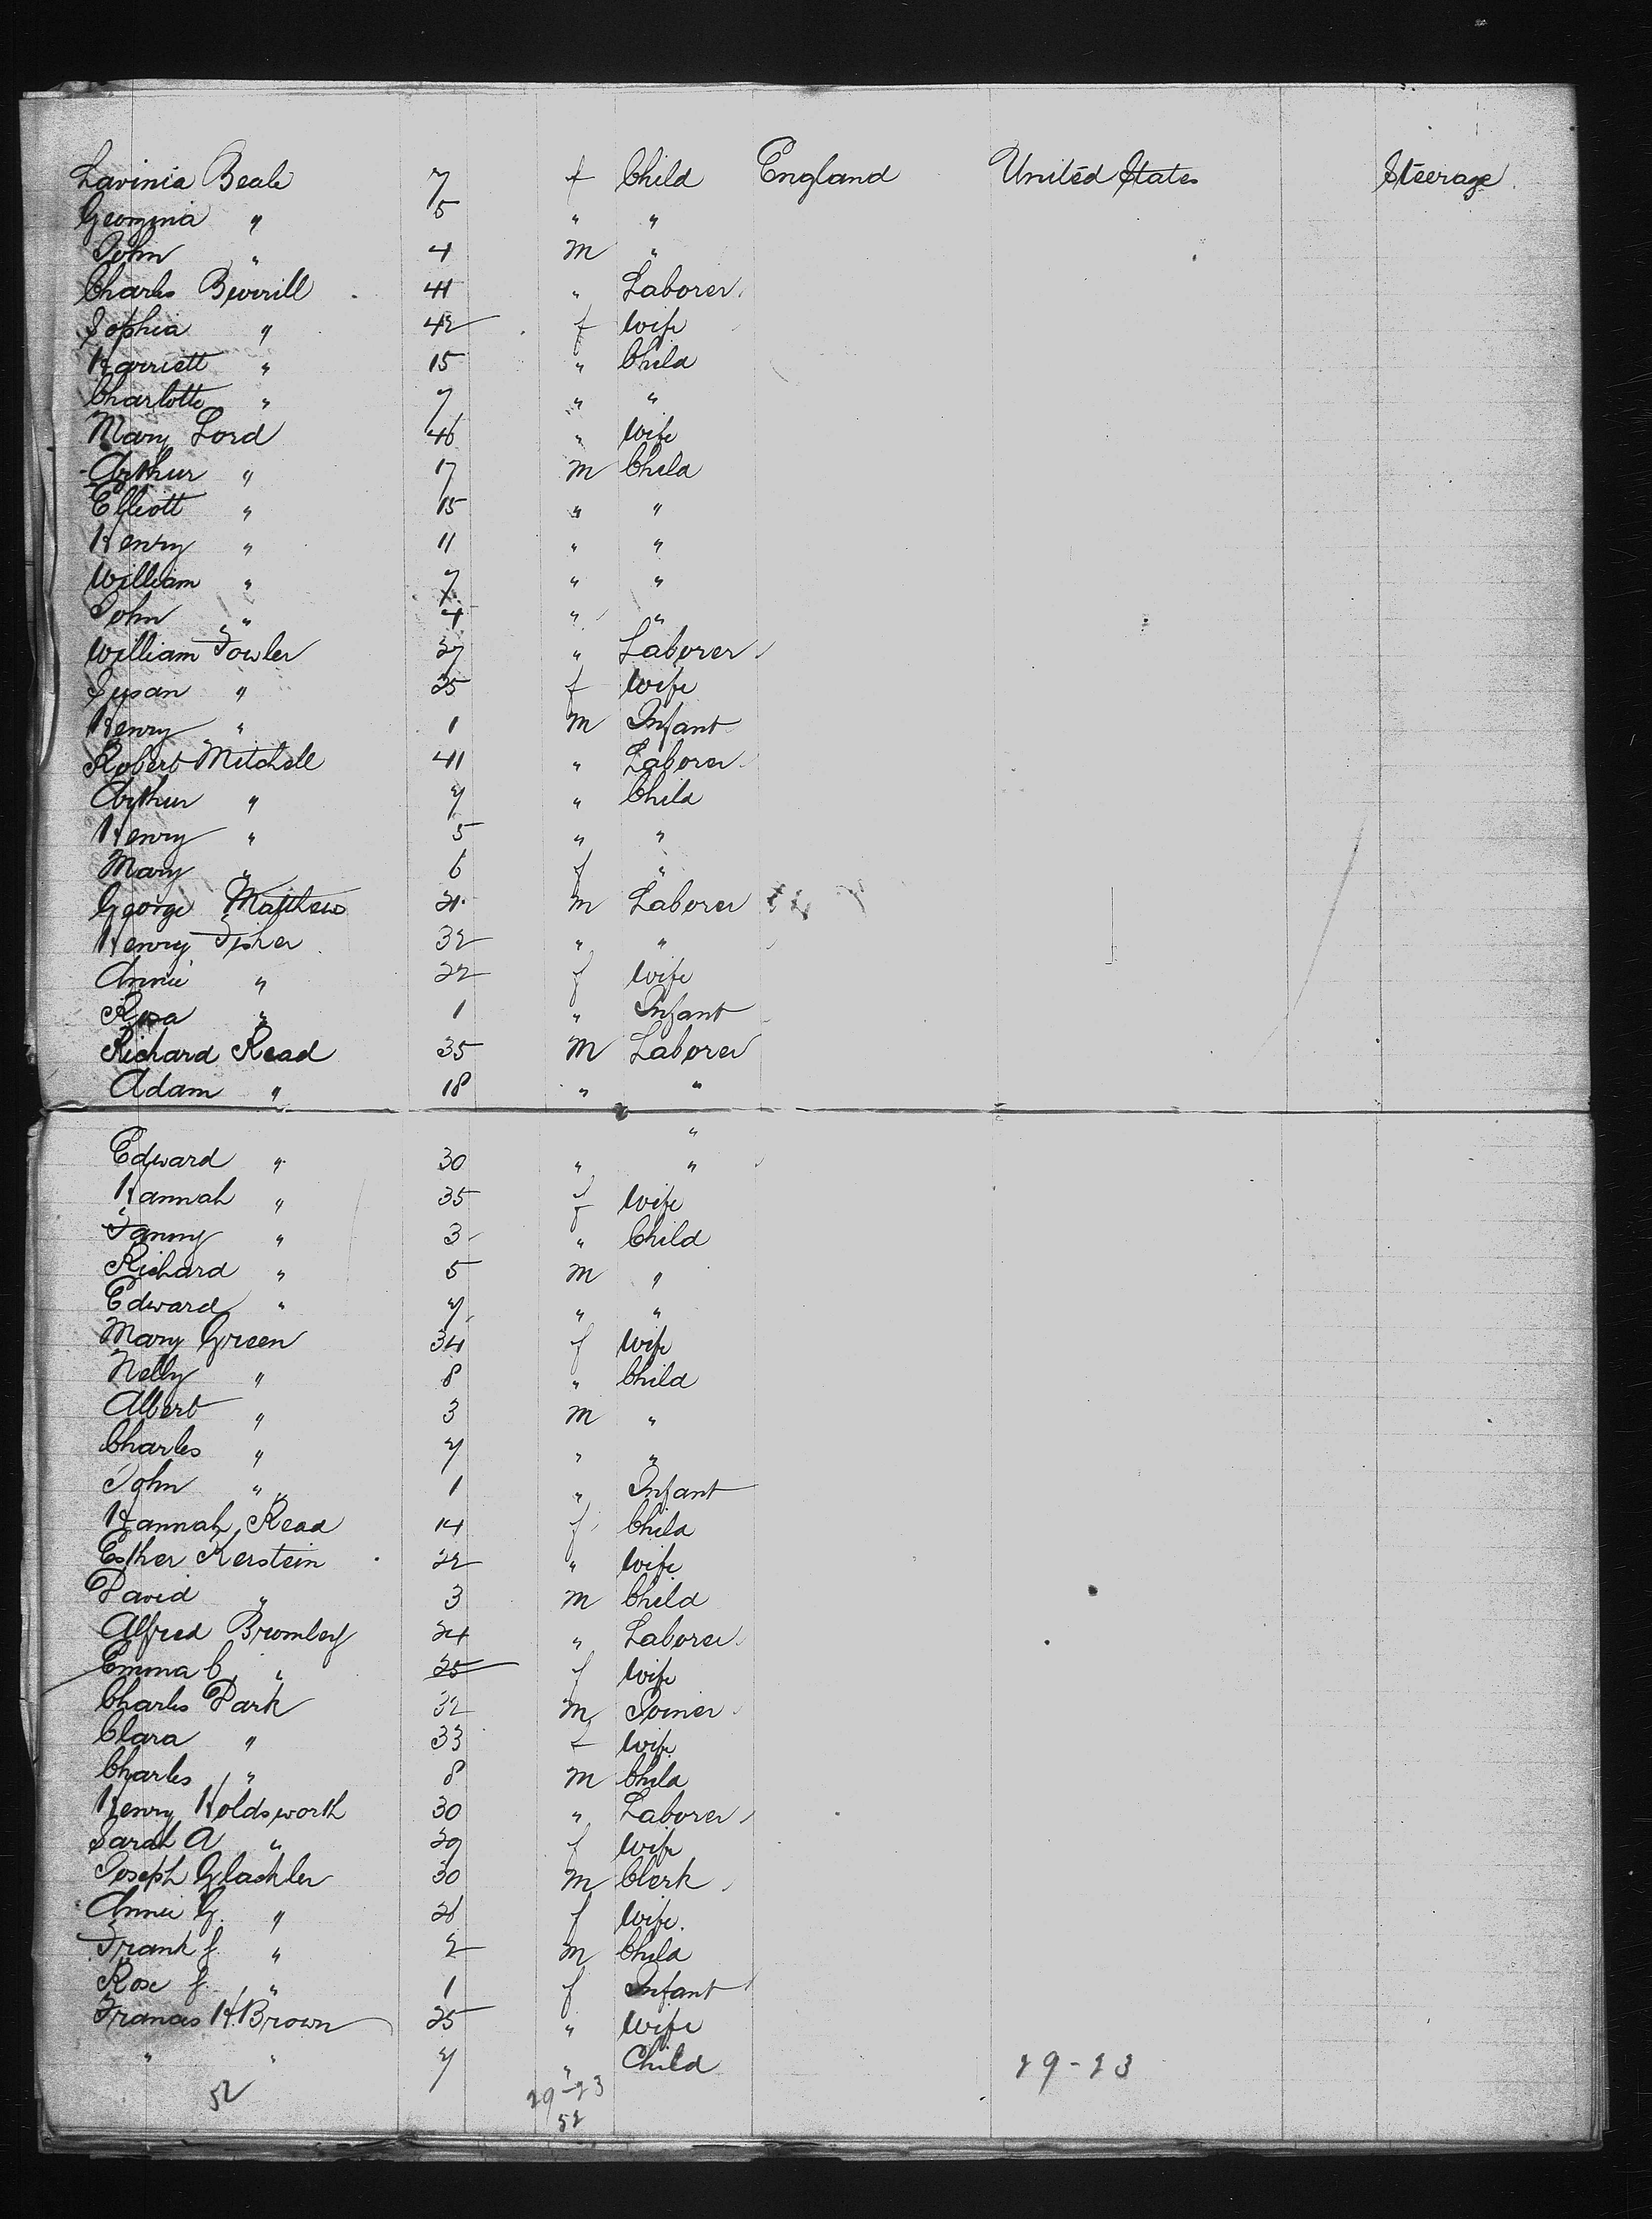 Lavinia Beale 7 f Child England United States Steerage
Georgina " 5 " "
John " 4 m "
Charles Beverill 41 " Laborer
Sophia " 42 f Wife
Harriett " 15 " Child
Charlotte " 7 " "
Mary Lord 46 " Wife
Arthur " 17 m Child
Elliott " 15 " "
Henry " 11 " "
William " 7 " "
John " 4 " "
William Fowler 27 " Laborer
Susan " 25 f Wife
Henry " 1 m Infant
Robert Mitchell 41 " Laborer
Arthur " 7 " Child
Henry " 5 " "
Mary " 6 f "
George Matthew 21 m Laborer
Henry Fisher 32 " "
Annie " 22 f Wife
Rosa " 1 " Infant
Richard Read 35 m Laborer
Adam " 18 " "
"
Edward " 30 " "
Hannah " 35 f Wife
Fanny " 3 " Child
Richard " 5 m "
Edward " 7 " "
Mary Green 34 f Wife
Nelly " 8 " Child
Albert " 3 m "
Charles " 7 " "
John " 1 " Infant
Hannah Read 14 f Child
Esther Kerstein 22 " Wife
David " 3 m Child
Alfred Bromley 24 " Laborer
Emma C. " 25 f Wife
Charles Park 32 m Joiner
Clara " 33 f Wife
Charles " 8 m Child
Henry Holdsworth 30 " Laborer
Sarah A " 29 f Wife
Joseph Glackler 30 m Clerk
Annie G. " 26 f Wife
Frank J. " 2 m Child
Rose J. " 1 f Infant
Frances H. Brown 25 " Wife
" " 7 " Child 29-23
52 29-23
52